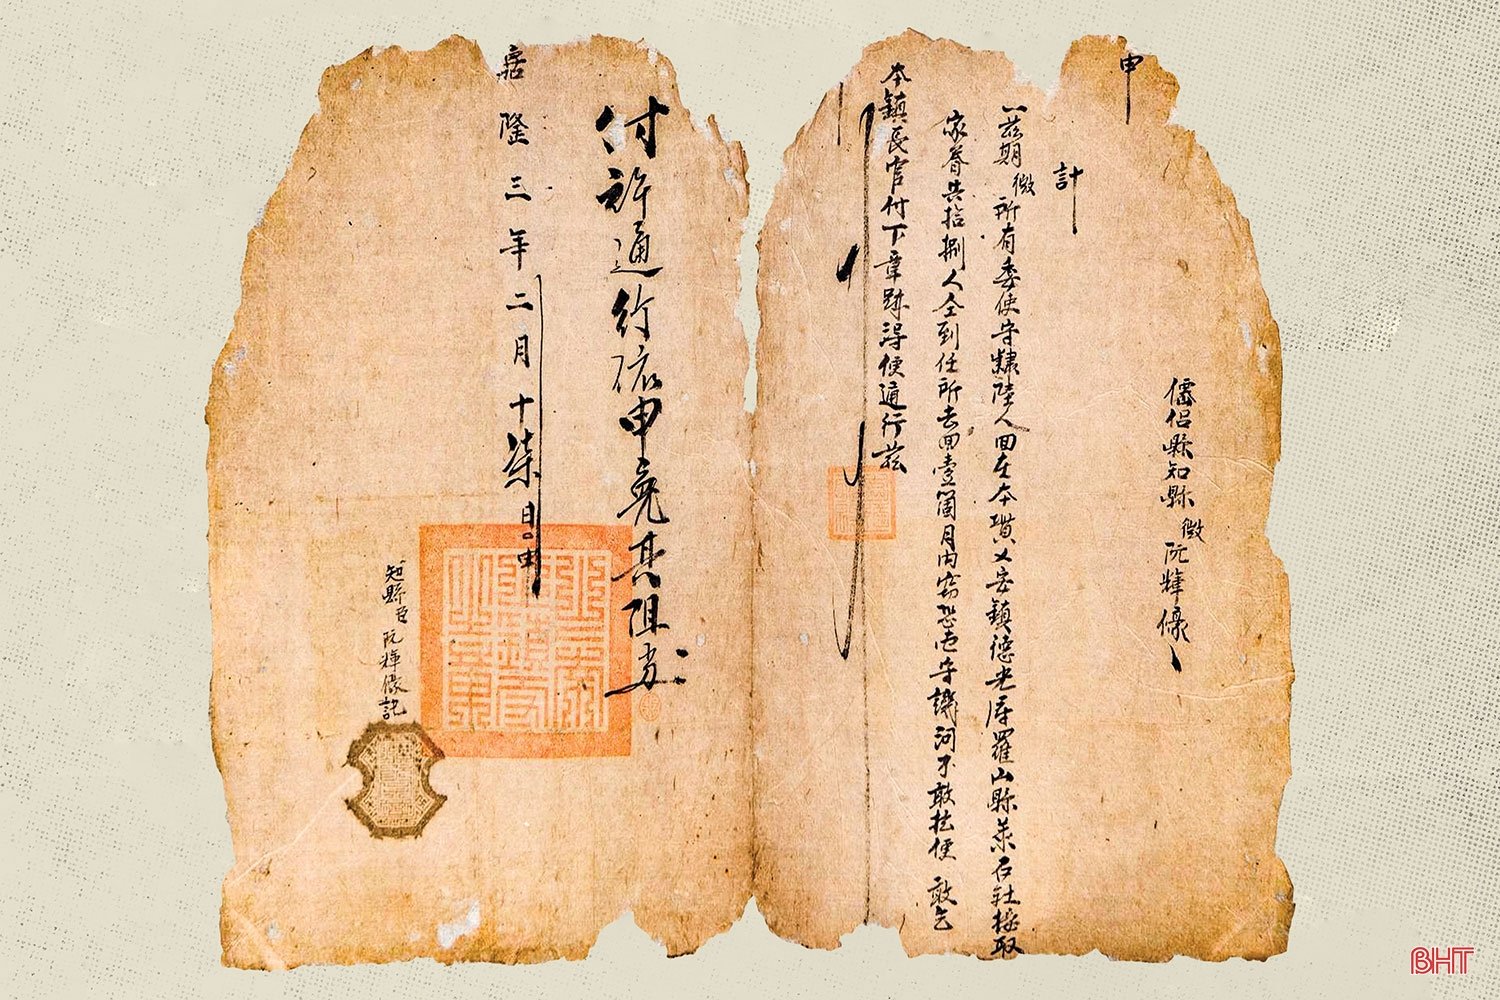 申
儒侣縣知縣微阮輝㒟
計
一茲期微所有委使守隸陸人回在本貫乂安鎮德光府羅山縣萊石社接取
家眷共拾捌人仝到任所去回壹箇月內窃恐屯守譏河不敢扲便敢乞
本鎮長官付下章跡得便通行茲
付許通行依申免其阻当
嘉隆三年二月十柒日申
知縣臣阮輝㒟記
BHT